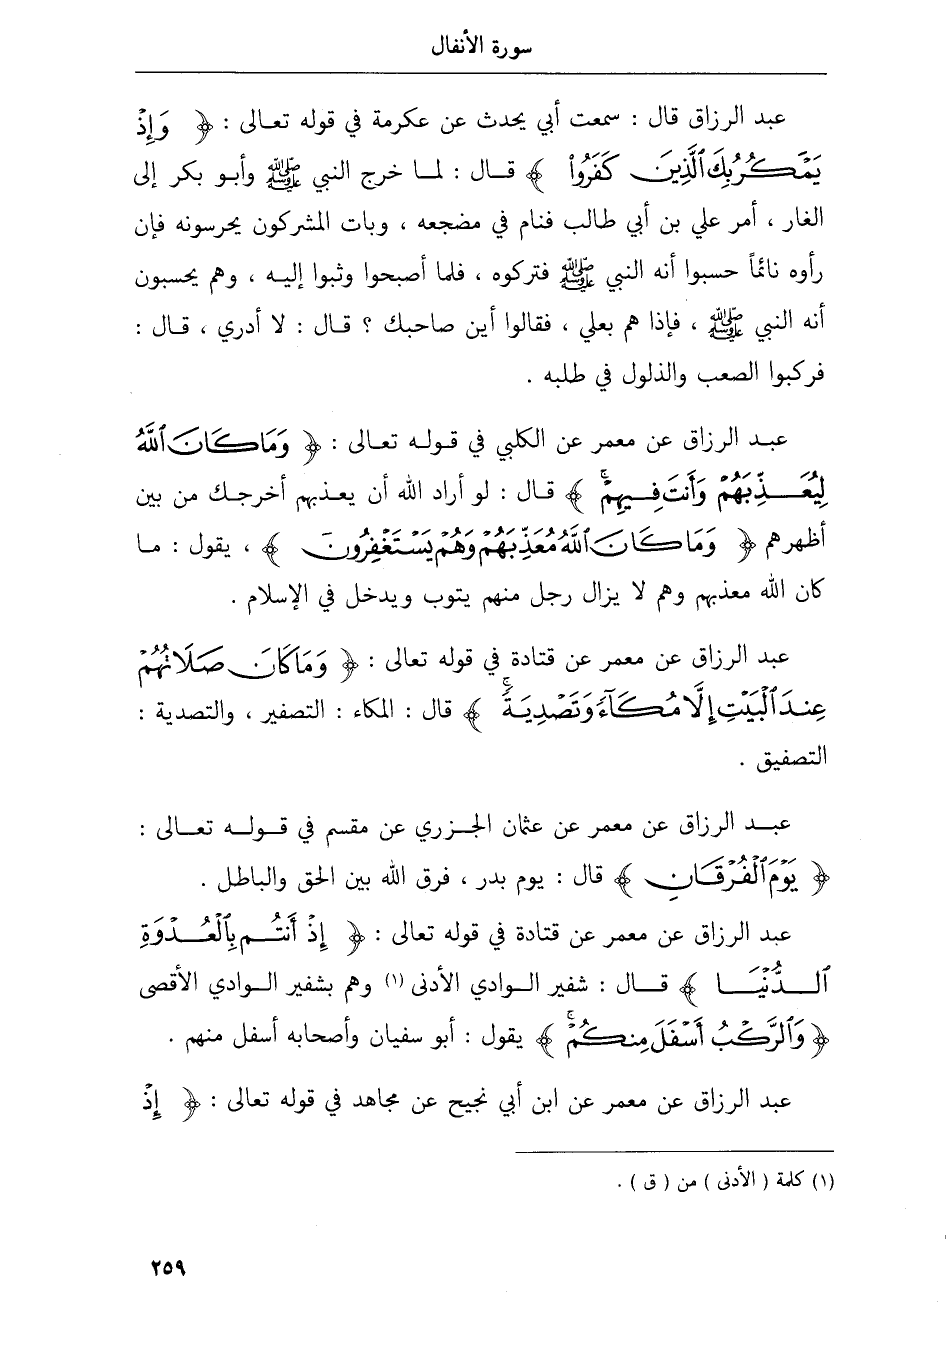 سورة الأنفال
عبد الرزاق قال : سمعت أبي يحدث عن عكرمة في قوله تعالى : ﴿ وَإِذْ
يَمْكُرُ بِكَ ٱلَّذِينَ كَفَرُوا۟ ﴾ قال : لما خرج النبي ﷺ وأبو بكر إلى
الغار ، أمر علي بن أبي طالب فنام في مضجعه ، وبات المشركون يحرسونه فإن
رأوه نائماً حسبوا أنه النبي ﷺ فتركوه ، فلما أصبحوا وثبوا إليه ، وهم يحسبون
أنه النبي ﷺ ، فإذا هم بعلي ، فقالوا أين صاحبك ؟ قال : لا أدري ، قال :
فركبوا الصعب والذلول في طلبه .
عبد الرزاق عن معمر عن الكلبي في قوله تعالى : ﴿ وَمَا كَانَ ٱللَّهُ
لِيُعَذِّبَهُمْ وَأَنتَ فِيهِمْ ۚ ﴾ قال : لو أراد الله أن يعذبهم أخرجك من بين
أظهرهم ﴿ وَمَا كَانَ ٱللَّهُ مُعَذِّبَهُمْ وَهُمْ يَسْتَغْفِرُونَ ﴾ ، يقول : ما
كان الله معذبهم وهم لا يزال رجل منهم يتوب ويدخل في الإسلام .
عبد الرزاق عن معمر عن قتادة في قوله تعالى : ﴿ وَمَا كَانَ صَلَاتُهُمْ
عِندَ ٱلْبَيْتِ إِلَّا مُكَآءً وَتَصْدِيَةً ۚ ﴾ قال : المكاء : التصفير ، والتصدية :
التصفيق .
عبد الرزاق عن معمر عن عثمان الجزري عن مقسم في قوله تعالى :
﴿ يَوْمَ ٱلْفُرْقَانِ ﴾ قال : يوم بدر ، فرق الله بين الحق والباطل .
عبد الرزاق عن معمر عن قتادة في قوله تعالى : ﴿ إِذْ أَنتُم بِٱلْعُدْوَةِ
ٱلدُّنْيَا ﴾ قال : شفير الوادي الأدنى (١) وهم بشفير الوادي الأقصى
﴿ وَٱلرَّكْبُ أَسْفَلَ مِنكُمْ ۚ ﴾ يقول : أبو سفيان وأصحابه أسفل منهم .
عبد الرزاق عن معمر عن ابن أبي نجيح عن مجاهد في قوله تعالى : ﴿ إِذْ
(١) كلمة ( الأدنى ) من ( ق ) .
٢٥٩